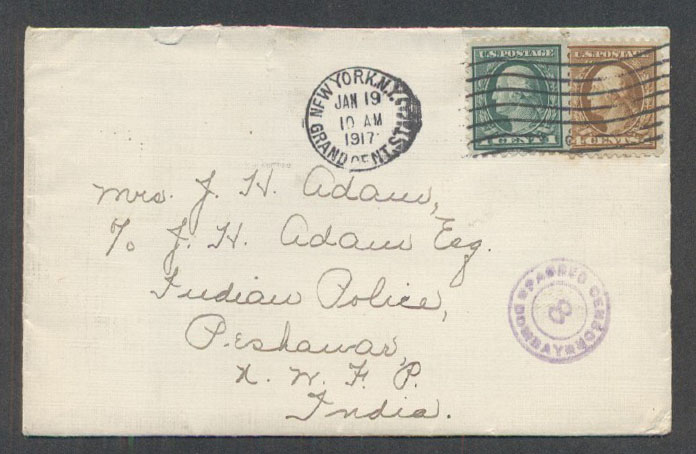 U.S.POSTAGE
U.S.POSTAGE
1 CENT 1
4 CENTS 4
NEW YORK, N.Y.
JAN 19
10 AM
1917
GRAND CENT. STA.
Mrs. J. H. Adam,
c/o J. H. Adam Esq.
Indian Police,
Peshawar,
N. W. F. P.
India.
PASSED CENSOR
8
BOMBAY